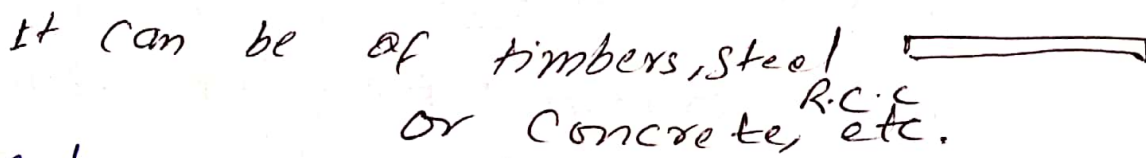 It can be of timbers, steel
R.C.C
or Concrete, etc.